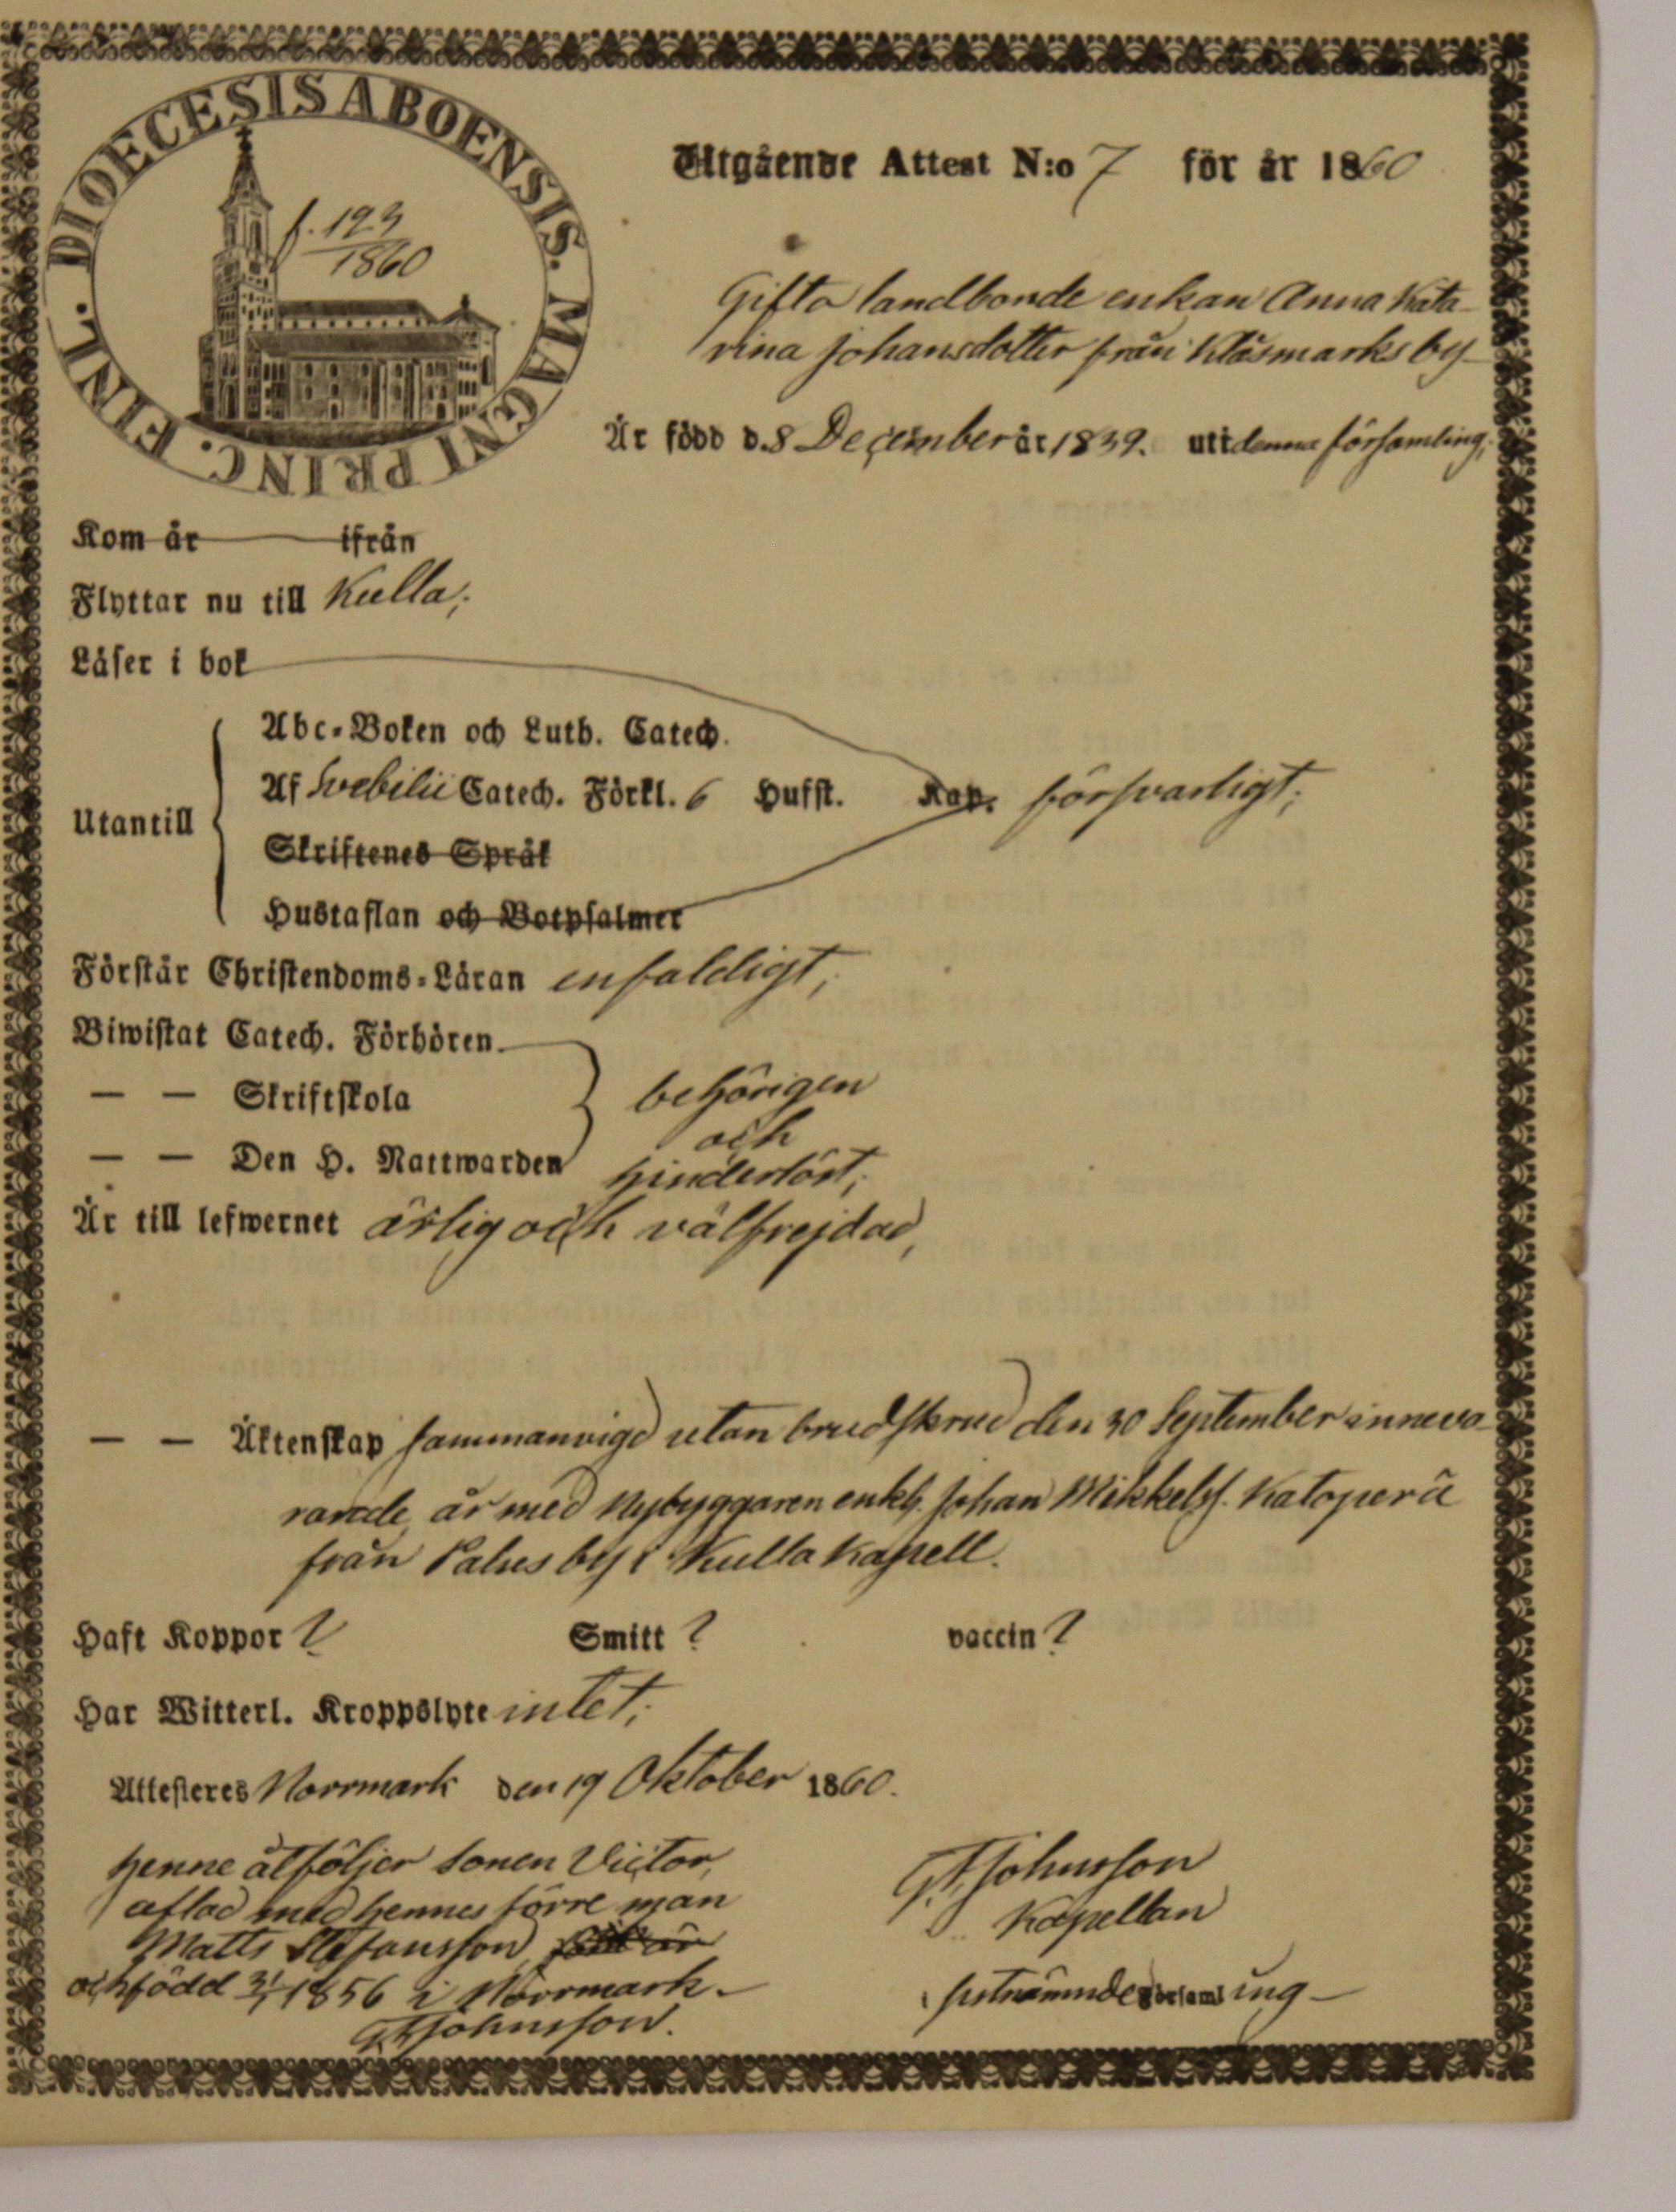 DIOECESIS ABOENSIS. MAGNI PRINC. FINL.
f. 123
1860
Utgående Attest N:o 7 för år 1860
Gifta landbonde enkan Anna Kata-
rina Johansdotter från Klåsmarks by
Är född d. 8 December år 1839. uti denna församling;
Kom år ifrån
Flyttar nu till Kulla;
Läser i bok
Utantill
Abc-Boken och Luth. Catech.
Af Svebilii Catech. Förkl. 6 Hufst. Kap. försvarligt;
Skriftenes Språk
Hustaflan och Botpsalmer
Förstår Christendoms-Läran enfaldigt;
Biwistat Catech. Förhören
— — Skriftskola behörigen
och
— — Den H. Nattwarden hinderlöst;
Är till lefwernet ärlig och välfrejdad,
— — Äktenskap sammanvigd utan brudskrud den 30 September inneva-
rande år med Nybyggaren enkl. Johan Mikkelss. Katoperä
från Palus by i Kulla Kapell.
Haft Koppor ? Smitt ? vaccin ?
Har Witterl. Kroppslyte intet;
Attesteres Norrmark den 19 Oktober 1860.
henne åtföljer sonen Victor,
aflad med hennes förre man
Matts Stefansson
och född 31/1 1856 i Norrmark.
G.A. Johnsson.
G.A. Johnsson
Kapellan
i förenämnde Församling